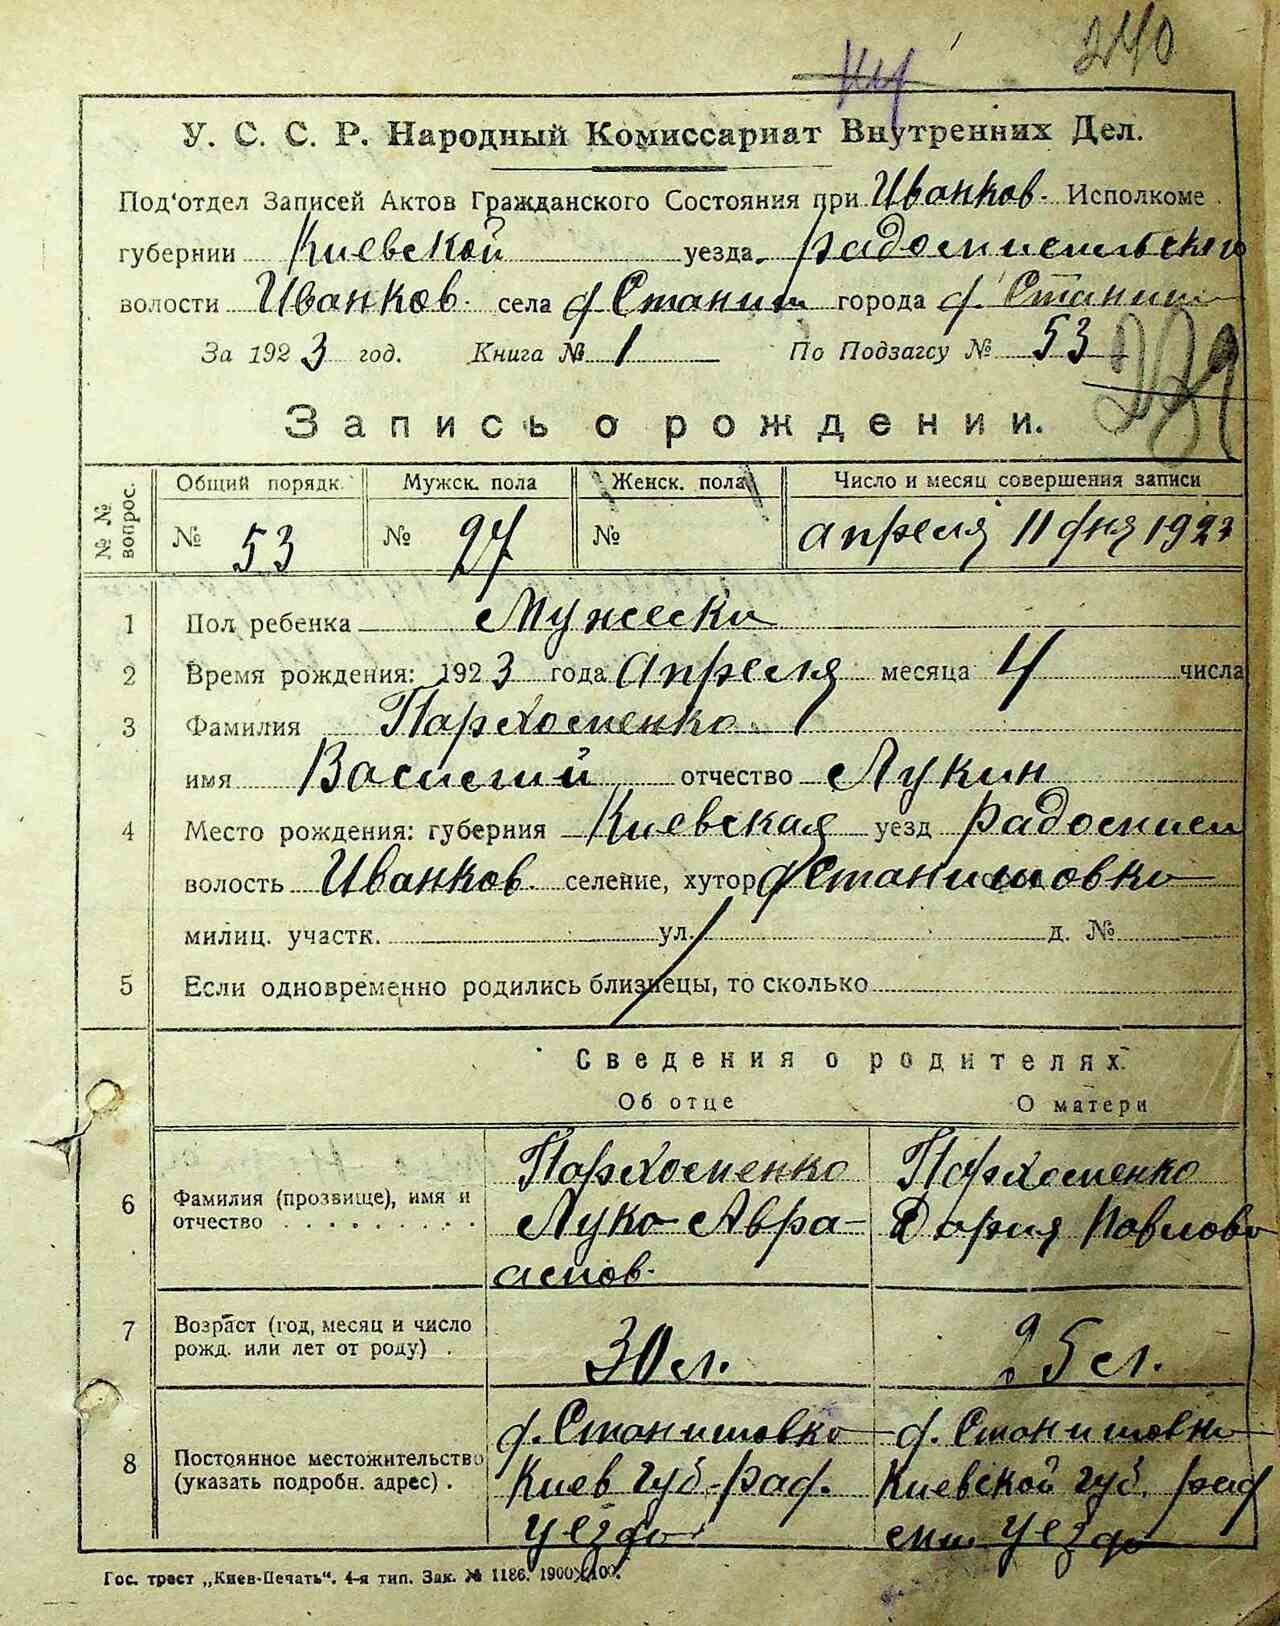 240
У. С. С. Р. Народный Комиссариат Внутренних Дел.
Под'отдел Записей Актов Гражданского Состояния при Иванков. Исполкоме
губернии Киевской уезда Радомисельского
волости Иванков. села д Станиш города д. Станиш
За 1923 год. Книга № 1 По Подзагсу № 53
239
Запись о рождении.
№ № вопрос. Общий порядк. Мужск. пола Женск. пола Число и месяц совершения записи
№ 53 № 27 № апреля 11 дня 1923
1 Пол ребенка Мужески
2 Время рождения: 1923 года апреля месяца 4 числа
3 Фамилия Пархоменко
имя Василий отчество Лукин
4 Место рождения: губерния Киевская уезд Радомисл
волость Иванков. селение, хутор д Станишовка
милиц. участк. ул. д. №
5 Если одновременно родились близнецы, то сколько
Сведения о родителях.
Об отце О матери
6 Фамилия (прозвище), имя и отчество
Пархоменко
Лука Авра-
амов.
Пархоменко
Дария Павлова
7 Возраст (год, месяц и число рожд. или лет от роду)
30 л. 25 л.
8 Постоянное местожительство (указать подробн. адрес).
д. Станишовка
Киев губ. рад.
уезда
д. Станишовка
Киевской губ. рад
уезда
Гос. трест „Киев-Печать". 4-я тип. Зак. № 1186.